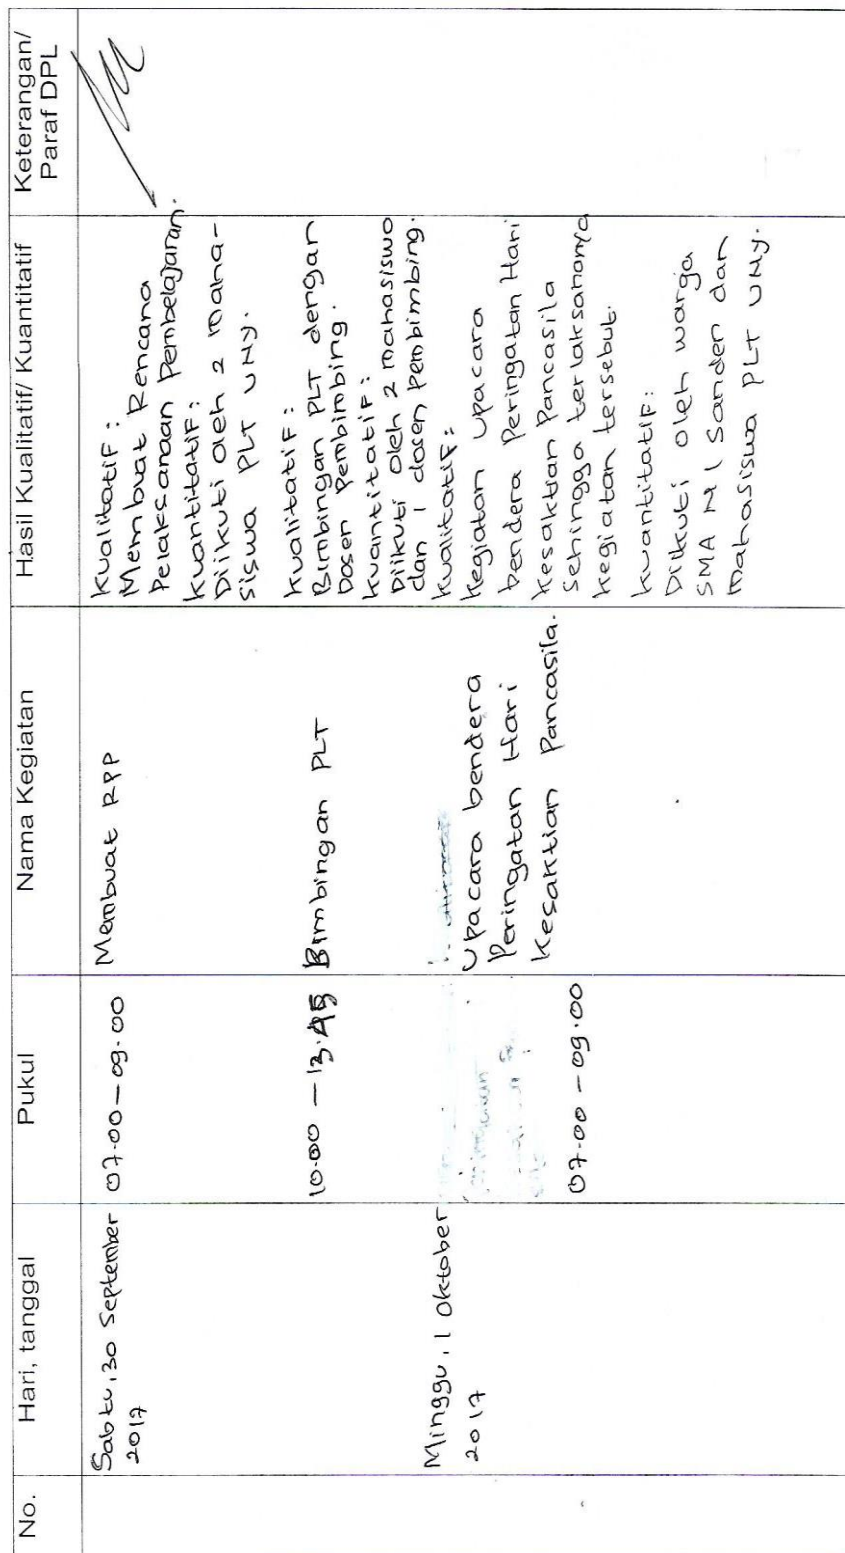 No.
Hari, tanggal
Pukul
Nama Kegiatan
Hasil Kualitatif/ Kuantitatif
Keterangan/
Paraf DPL
Sabtu, 30 September
2017
07.00 – 09.00
Membuat RPP
Kualitatif :
Membuat Rencana
Pelaksanaan Pembelajaran.
Kuantitatif :
Diikuti oleh 2 maha-
siswa PLT UNY.
10.00 – 13.45
Bimbingan PLT
Kualitatif :
Bimbingan PLT dengan
Dosen Pembimbing.
Kuantitatif :
Diikuti oleh 2 mahasiswa
dan 1 dosen Pembimbing.
Minggu, 1 Oktober
2017
07.00 – 09.00
Upacara bendera
Peringatan Hari
Kesaktian Pancasila.
Kualitatif :
Kegiatan Upacara
bendera Peringatan Hari
Kesaktian Pancasila
Sehingga terlaksananya
kegiatan tersebut.
Kuantitatif :
Diikuti oleh warga
SMA N 1 Sanden dan
mahasiswa PLT UNY.